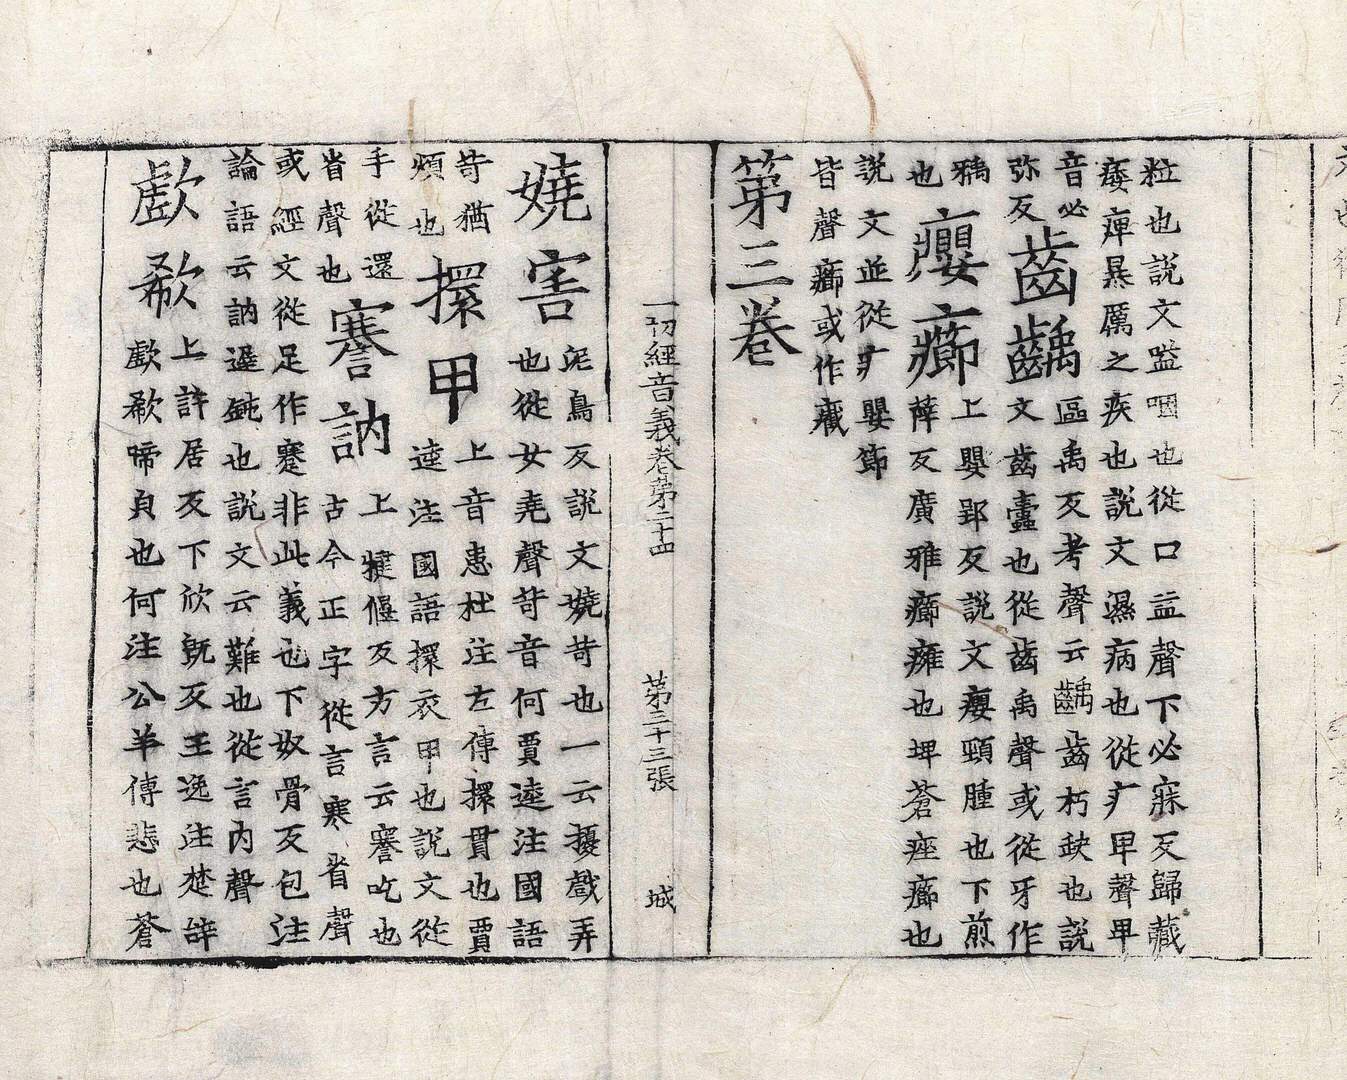 粒也說文嗌咽也從口益聲下必寐反歸藏
痿痺㬥厲之疾也說文濕病也從疒畀聲畀
音必
弥反
齒齲
區禹反考聲云齲齒朽缺也說
文齒蠹也從齒禹聲或從牙作
鴉也
癭癤
上嬰郢反說文癭頸腫也下煎
薛反廣雅癤癰也埤蒼痤癤也
說文並從疒嬰節
皆聲癤或作𤻰
第三卷
一切經音義卷第三十四 第三十三張 城
嬈害
泥鳥反說文嬈苛也一云擾戲弄
也從女堯聲苛音何賈逵注國語
苛猶
煩也
擐甲
上音患杜注左傳擐貫也賈
逵注國語擐衣甲也說文從
手從還
省聲也
謇訥
上犍偃反方言云謇吃也
古今正字從言寒省聲
或經文從足作蹇非此義也下奴骨反包注
論語云訥遲鈍也說文云難也從言內聲
歔欷
上許居反下欣旣反王逸注楚辝
歔欷啼皃也何注公羊傳悲也蒼